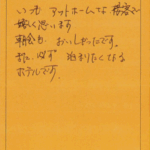 いつも アットホームな 接客で
嬉しく思います
朝食も、おいしかったです。
また、必ず 泊りたくなる
ホテルです